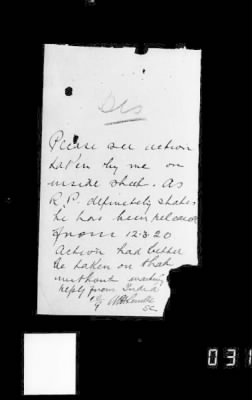 Des
Please see action
taken by me on
inside sheet. As
R.P. definitely states
he has been released
from 12.3.20
Action had better
be taken on that
without waiting
reply from India
031